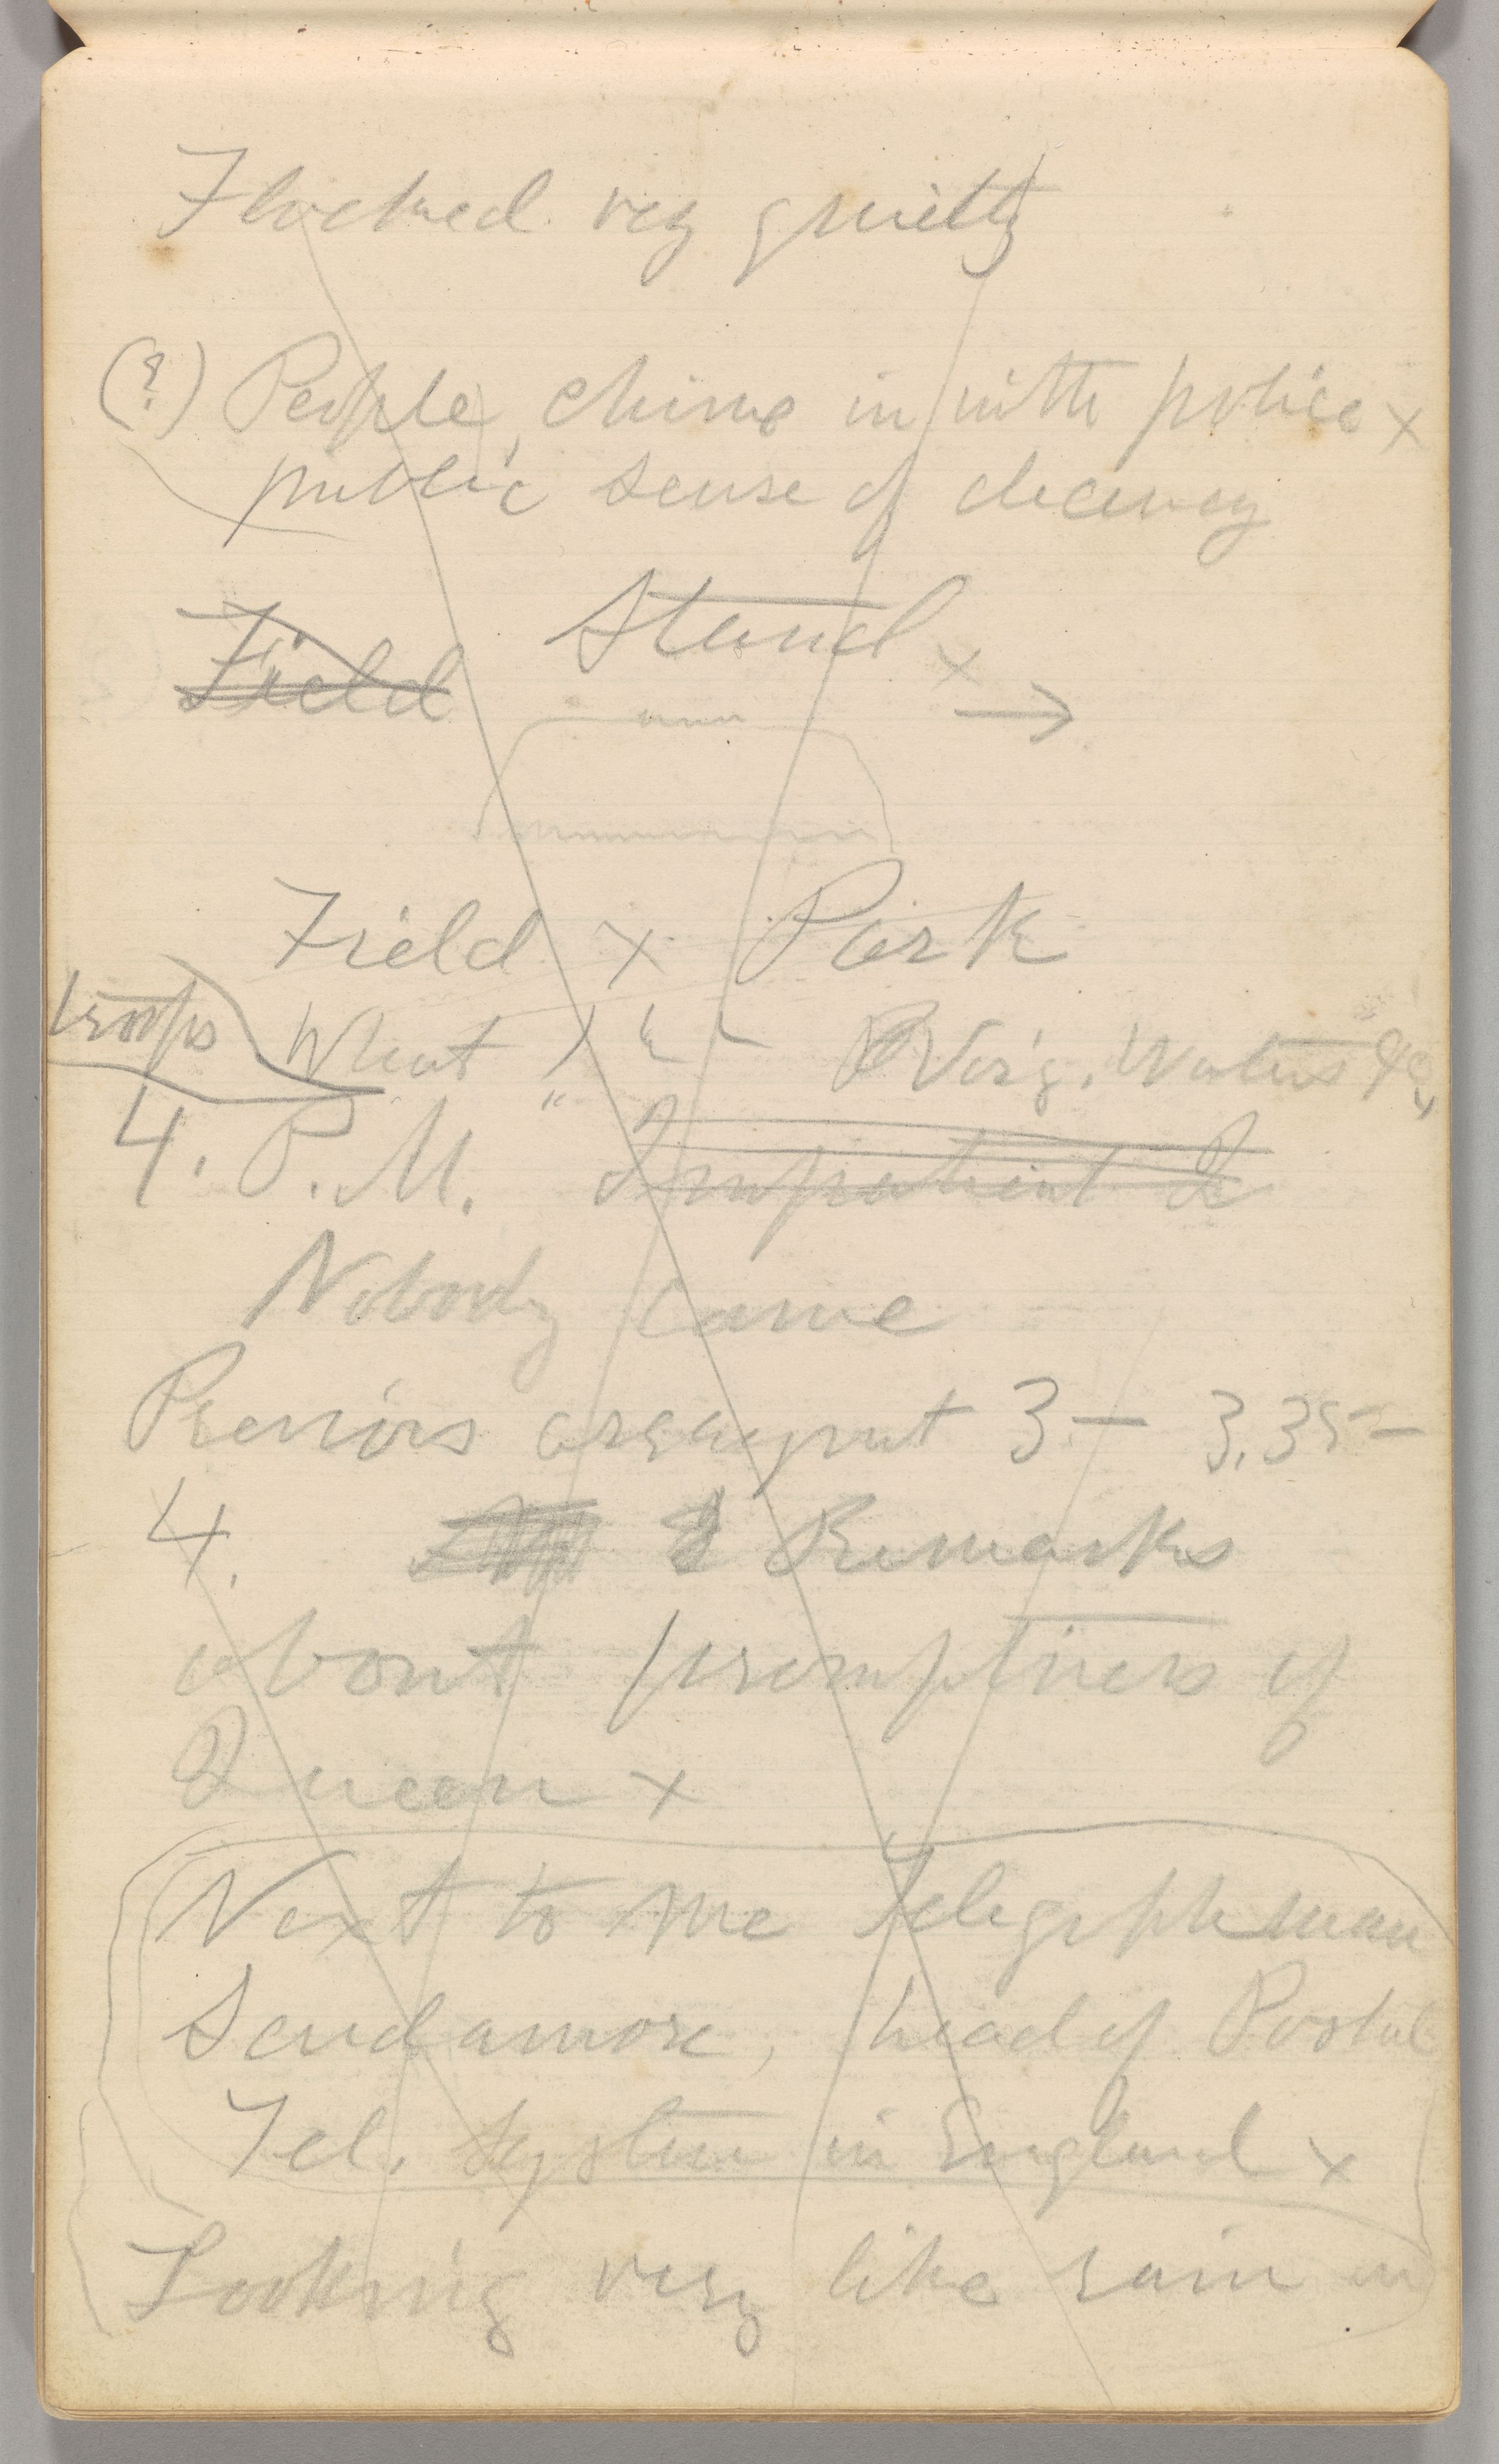 Flocked very quietly
(?) People chime in with police x
public sense of decency
Stand x
Field
Field x Park
troops What " " " Virg. Waters &c x
4. P.M. Impatient &
Nobody came
Previous 3 — 3.35 —
4. Remarks
about promptness of
Queen x
Next to me telegrph man
Scudamore, head of Postal
Tel. System in England x
Looking very like rain